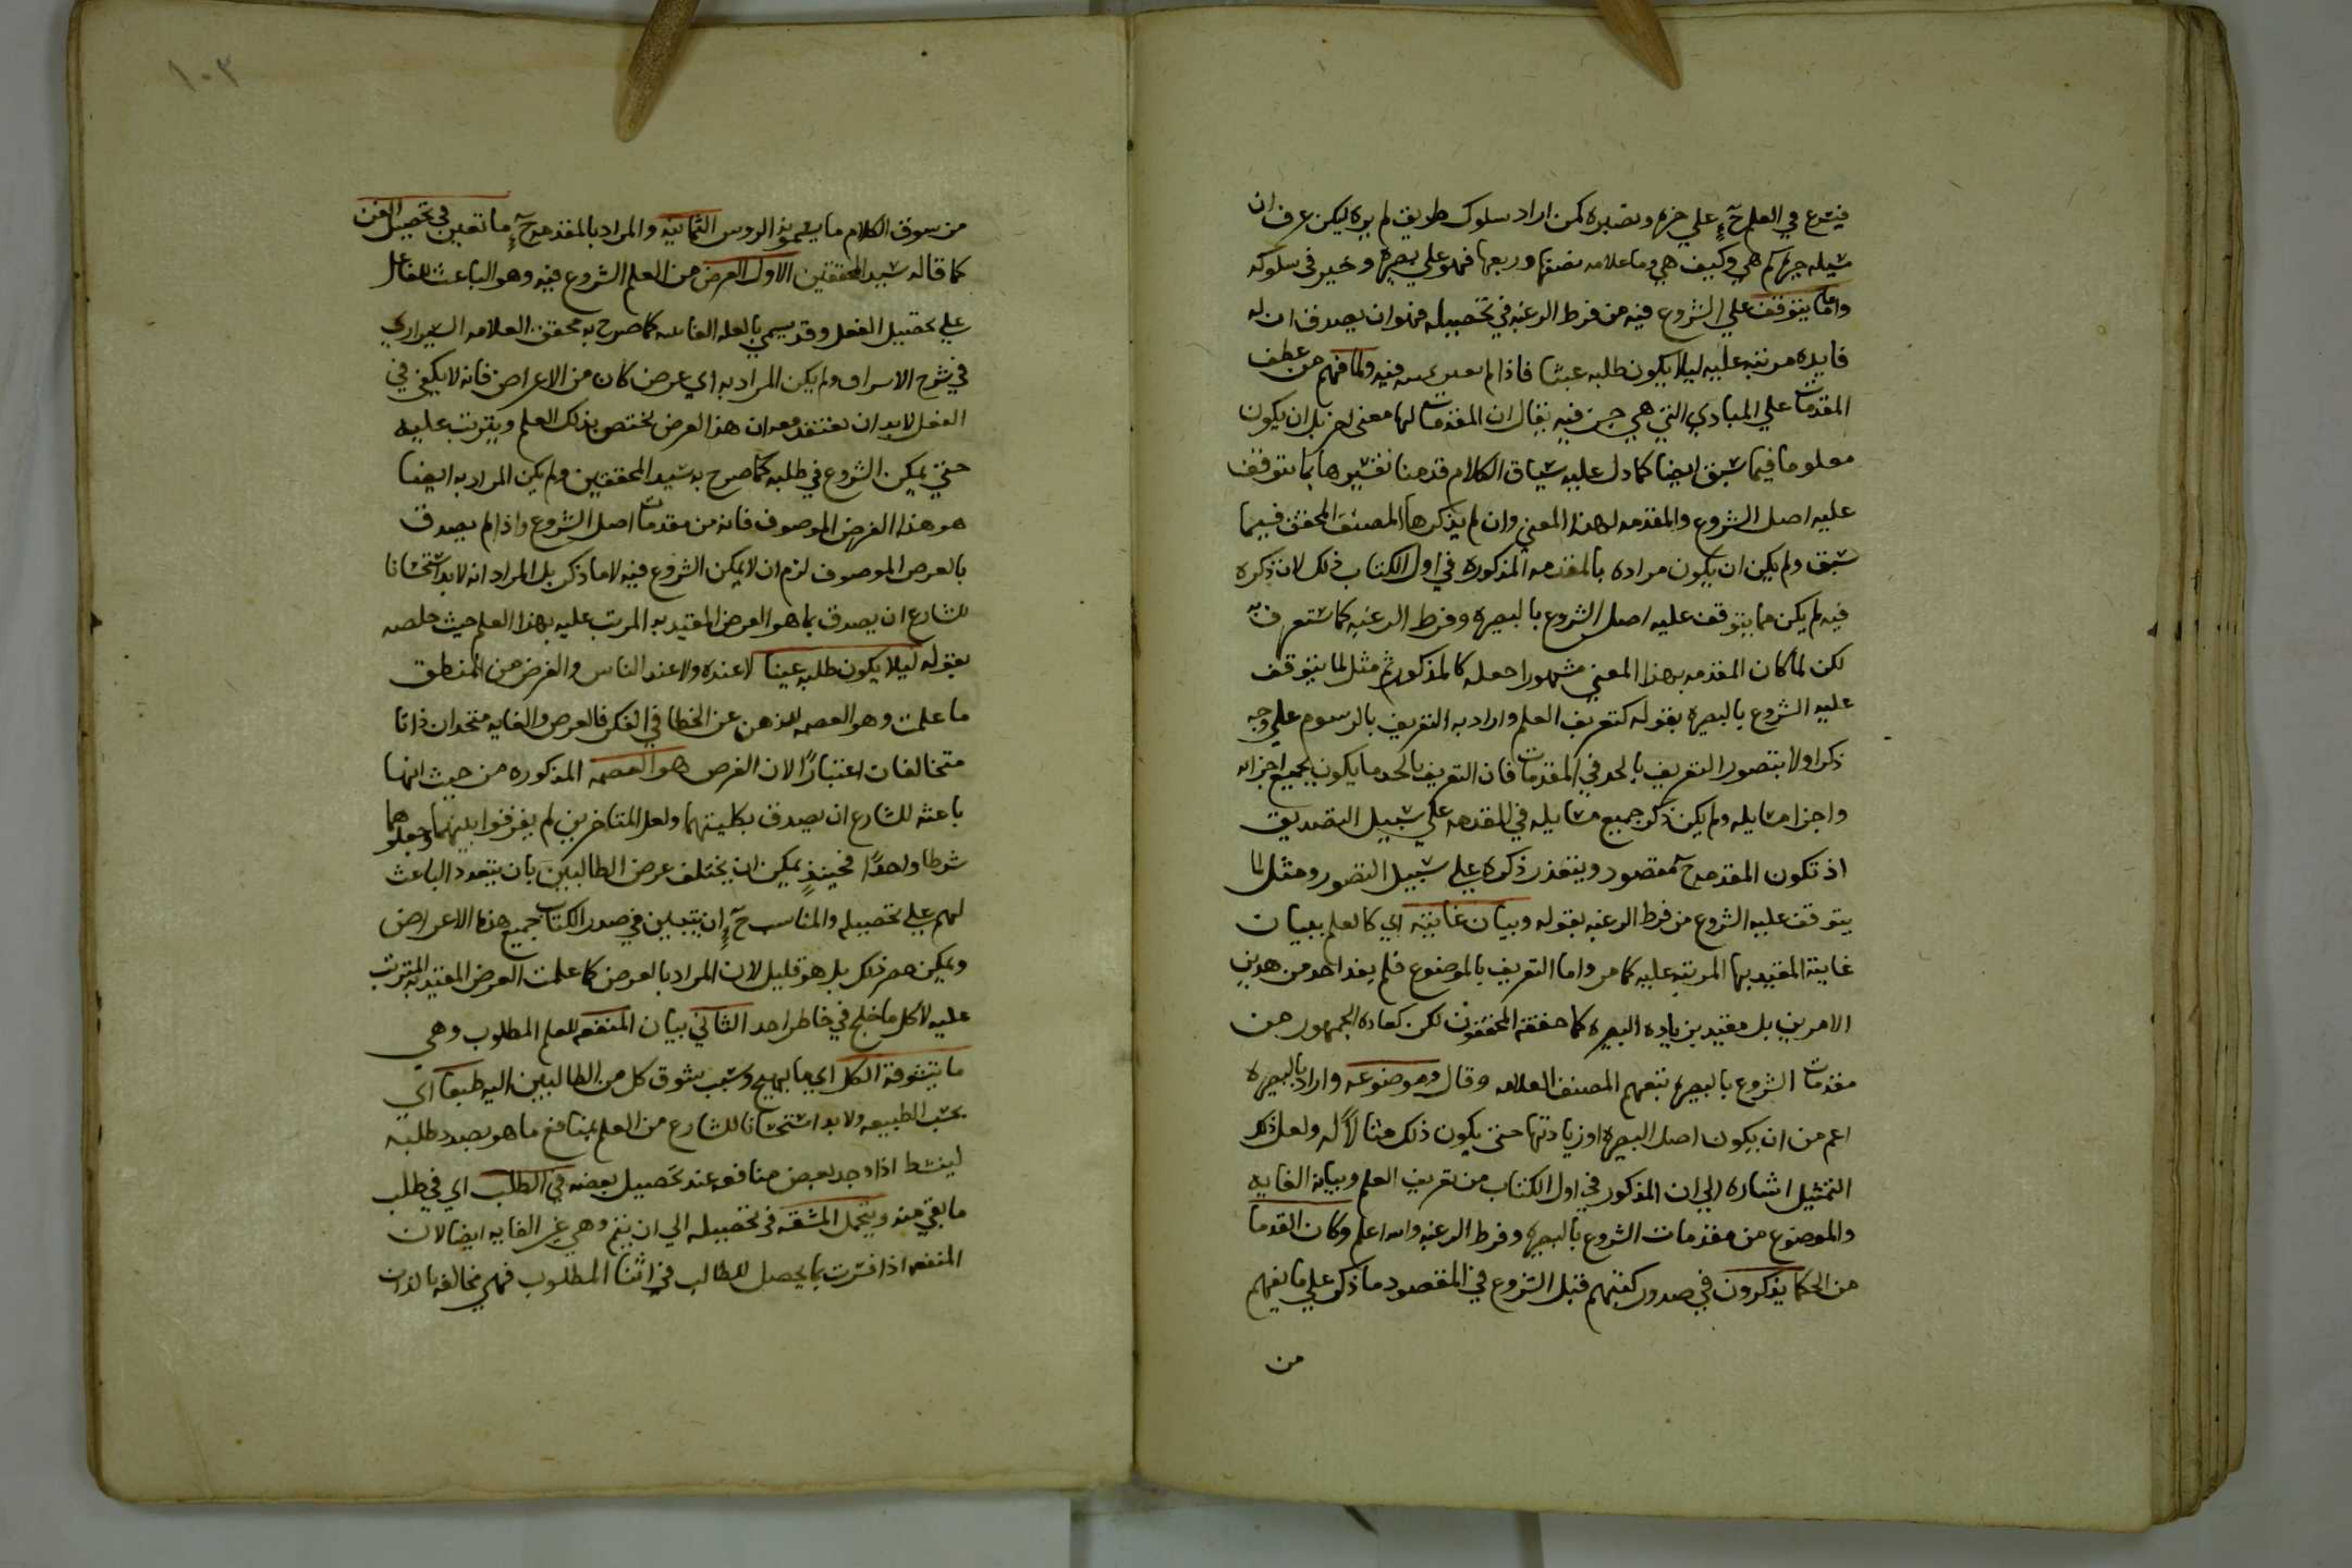 فيشرع في العلم ح على خبره وبصيره كمن اراد سلوك طريق لم يره ليكن عرف ان
سبله جهة كم هي وكيف هي وما علامه نصفها وربعها فهو على بصيره وخير في سلوكه
واما ما يتوقف علي الشروع فيه من فرط الرغبه في تحصيله فهو ان يصدق ان له
فايده مرتبه عليه ليلا يكون طلبه عبثا فاذا لم فيه ولما فهم من عطف
المقدمات علي المبادي التي هي جزء فيه يقال ان المقدمات لها معنى اخر بل ان يكون
معلوما فيما سبق ايضا كما دل عليه سياق الكلام قدمنا تفسيرها بما يتوقف
عليه اصل الشروع والمقدمه لهذا المعني وان لم يذكرها المصنف المحقق فيما
سبق ولم يكن ان يكون مراده بالمقدمه المذكوره في اول الكتاب ذلك لان ذكره
فيه لم يكن مما يتوقف عليه اصل الشروع بالبصيره وفرط الرغبه كما ستعرف به
لكن لما كان المقدمه بهذا المعني مشهورا جعله كالمذكور ثم مثل لما يتوقف
عليه الشروع بالبصيرة بقوله كتعريف العلم واراد به التعريف بالرسوم علي وجه
ذكر اولا بتصور التعريف بالحد في المقدمات فان التعريف بالحد ما يكون بجميع اجزائه
واجزا مسايله ولم يكن ذكر جميع مسايله في المقدمه علي سبيل التصديق
اذ تكون المقدمه ح مقصود ويتعذر ذكره علي سبيل التصور ومثل لما
يتوقف عليه الشروع من فرط الرغبه بقوله وبيان غايته اي كالعلم ببيان
غاية المقيد بها المرتبه عليه كما مر واما التعريف بالموضوع فلم يفد احد من هذين
الامرين بل مفيد بزياده البصره كما حققه المحققون لكن كعاده الجمهور من
مقدمات الشروع بالبصيره تبعهم المصنف العلامه وقال وموضوعه واراد بالبصيره
اعم من ان يكون اصل البصيره او زيادتها حتى يكون ذلك مثالا له ولعل ذلك
التمثيل اشاره الي ان المذكور في اول الكتاب من تعريف العلم وبيانه الغايه
والموضوع من مقدمات الشروع بالبصيره وفرط الرغبه والله اعلم وكان القدما
من الحكما يذكرون في صدور كتبهم قبل الشروع في المقصود ما ذكر علي ما يفهم
من
١٠٣
من سوق الكلام ما يسمونه الروس الثمانيه والمراد بالمقدمه ح ما تعين في تحصيل الفن
كما قاله سيد المحققين الاول الغرض من العلم الشروع فيه وهو الباعث للفاعل
علي تحصيل الفعل وقد يسمي بالعله الغائيه كما صرح به محقق العلامه الشيرازي
في شرح الاسراف ولم يكن المراد به اي غرض كان من الاغراض فانه لا يكفي في
الفعل لا بد ان يعتقد معه ان هذا الغرض يختص بذلك العلم ويترتب عليه
حتي يمكن الشروع في طلبه كما صرح به سيد المحققين ولم يكن المراد به ايضا
هو هذا الغرض الموصوف فانه من مقدمات اصل الشروع واذا لم يصدق
بالغرض الموصوف لزم ان لا يمكن الشروع فيه لاما ذكر بل المراد انه لا بد استحسانا
للشارع ان يصدق بما هو الغرض المقيد به المرتب عليه بهذا العلم حيث خلصه
بقوله ليلا يكون طلبه عبثا لا عنده ولا عند الناس والغرض من المنطق
ما علمت وهو العصمه للذهن عن الخطا في الفكر فالغرض والغايه متحدان ذاتا
متخالفان اعتبارًا لان الغرض هو العصمه المذكوره من حيث انها
باعثه للشارع ان يصدق بكليتهما ولعل المتاخرين لم يفرقوا بينهما وجعلوهما
شرطا واحدًا فحينئذٍ يمكن ان يختلف غرض الطالبين بان يتعدد الباعث
لهم علي تحصيله والمناسب ح ان يتبين في صدر الكتاب جميع هذه الاغراض
ويمكن حصر ذلك بل هو قليل لان المراد بالغرض كما علمت الغرض المقيد به المترتب
عليه لا كل ما خلج في خاطر احد الثاني بيان المنفعه للعلم المطلوب وهي
ما يتشوقه الكل اي ما يهيج وسبب شوق كل من الطالبين اليه طبعا اي
بحسب الطبيعه ولا بد استحسانا للشارع من العلم بمنافع ما هو بصدد طلبه
لينشط اذا وجد بعض منافعه عند تحصيل بعضه في الطلب اي في طلب
ما بقي منه ويتحمل المشقه في تحصيله الي ان يتم وهي غير الغايه ايضا لان
المنفعه اذا فسرت بما يحصل للطالب في اثنا المطلوب فهي مخالفه بالذات